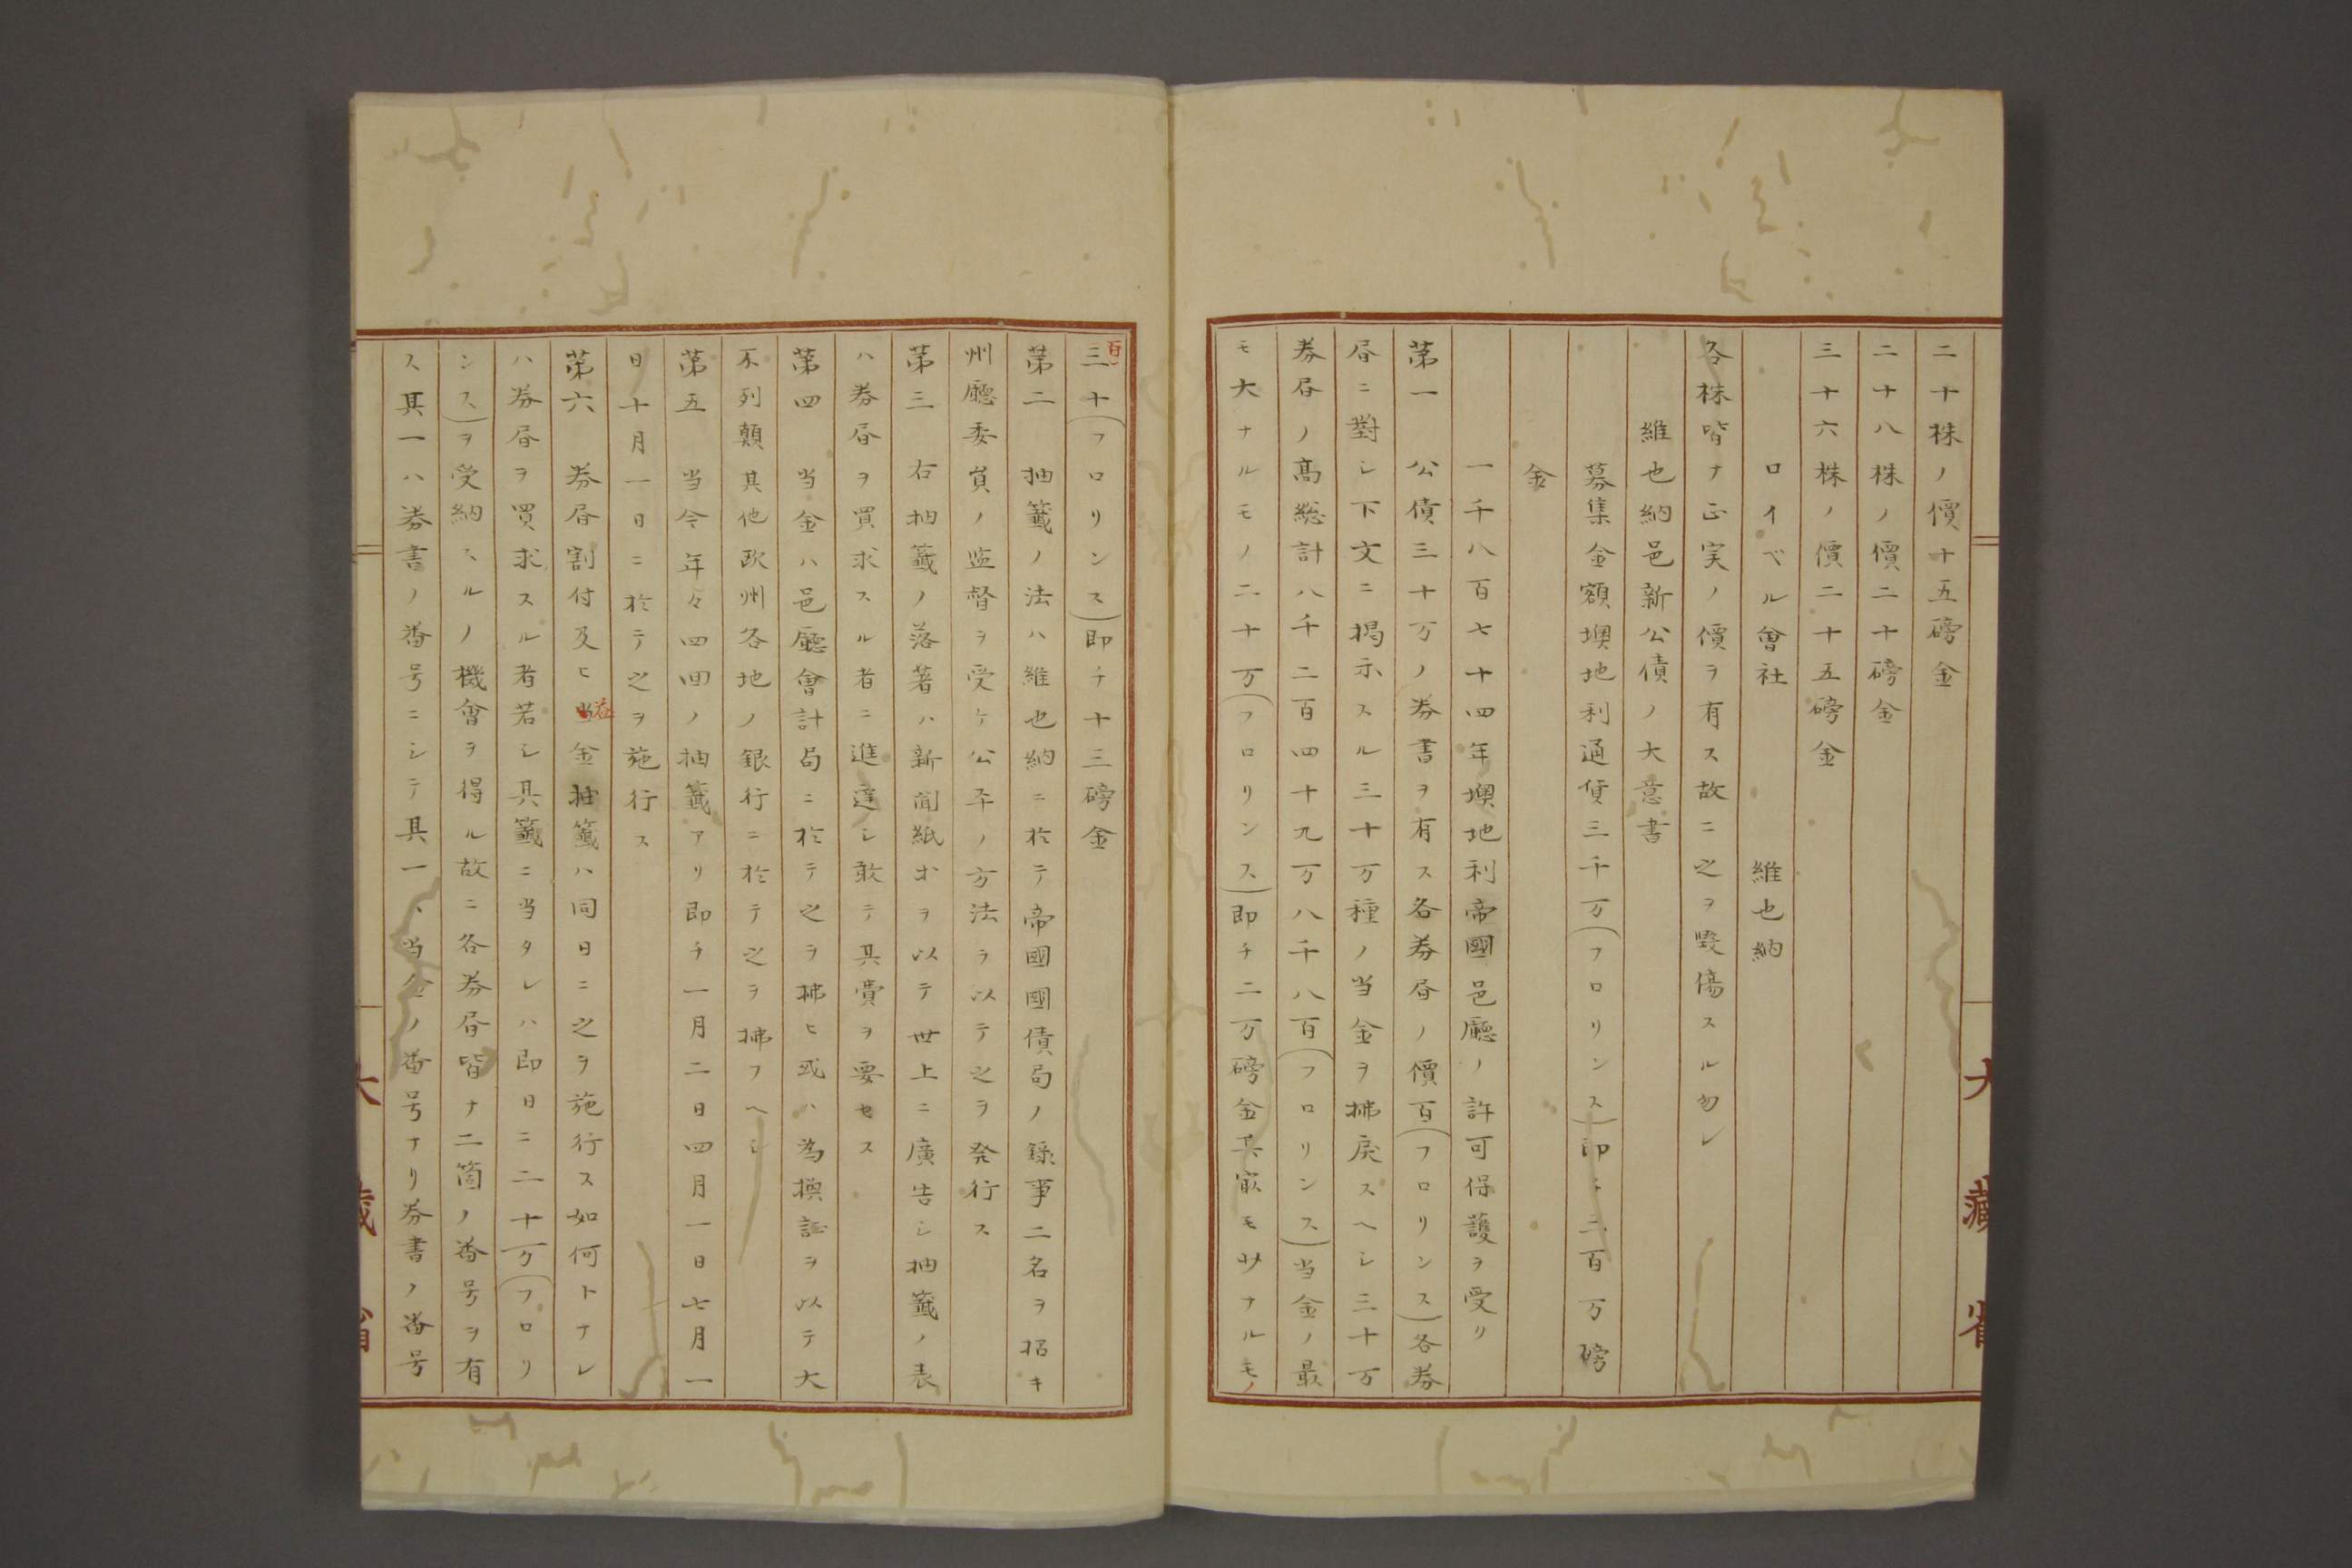 二十株ノ價十五磅金
二十八株ノ價二十磅金
三十六株ノ價二十五磅金
ロイベル會社　維也納
各株皆ナ正実ノ價ヲ有ス故ニ之ヲ毀傷スル勿レ
維也納邑新公債ノ大意書
募集金額墺地利通貨三千万(フロリンス)即チ二百万磅
金
一千八百七十四年墺地利帝國邑廳ノ許可保護ヲ受リ
第一　公債三十万ノ券書ヲ有ス各券㞐ノ價百(フロリンス)各券
㞐ニ對シ下文ニ掲示スル三十万種ノ当金ヲ拂戻スヘシ三十万
券㞐ノ高総計八千二百四十九万八千八百(フロリンス)当金ノ最
モ大ナルモノ二十万(フロリンス)即チ二万磅金其㝡モ少ナルモノ
百
三十(フロリンス)即チ十三磅金
第二　抽籤ノ法ハ維也納ニ於テ帝國國債局ノ錄事二名ヲ招キ
州廳委員ノ监督ヲ受ケ公平ノ方法ヲ以テ之ヲ発行ス
第三　右抽籤ノ落著ハ新聞紙オヲ以テ世上ニ廣告シ抽籤ノ表
ハ券㞐ヲ買求スル者ニ進達シ敢テ其費ヲ要セス
第四　当金ハ邑廳會計局ニ於テ之ヲ拂ヒ或ハ為換証ヲ以テ大
不列顛其他欧州各地ノ銀行ニ於テ之ヲ拂フヘシ
第五　当今年々四回ノ抽籤アリ即チ一月二日四月一日七月一
日十月一日ニ於テ之ヲ施行ス
第六　券㞐割付及ヒ当金抽籤ハ同日ニ之ヲ施行ス如何トナレ
ハ券㞐ヲ買求スル者若シ其籤ニ当タレハ即日ニ二十万(フロリ
ンス)ヲ受納スルノ機會ヲ得ル故ニ各券㞐皆ナ二箇ノ番号ヲ有
ス其一ハ券書ノ番号ニシテ其一ハ当金ノ番号ナリ券書ノ番号
大藏省
大藏省